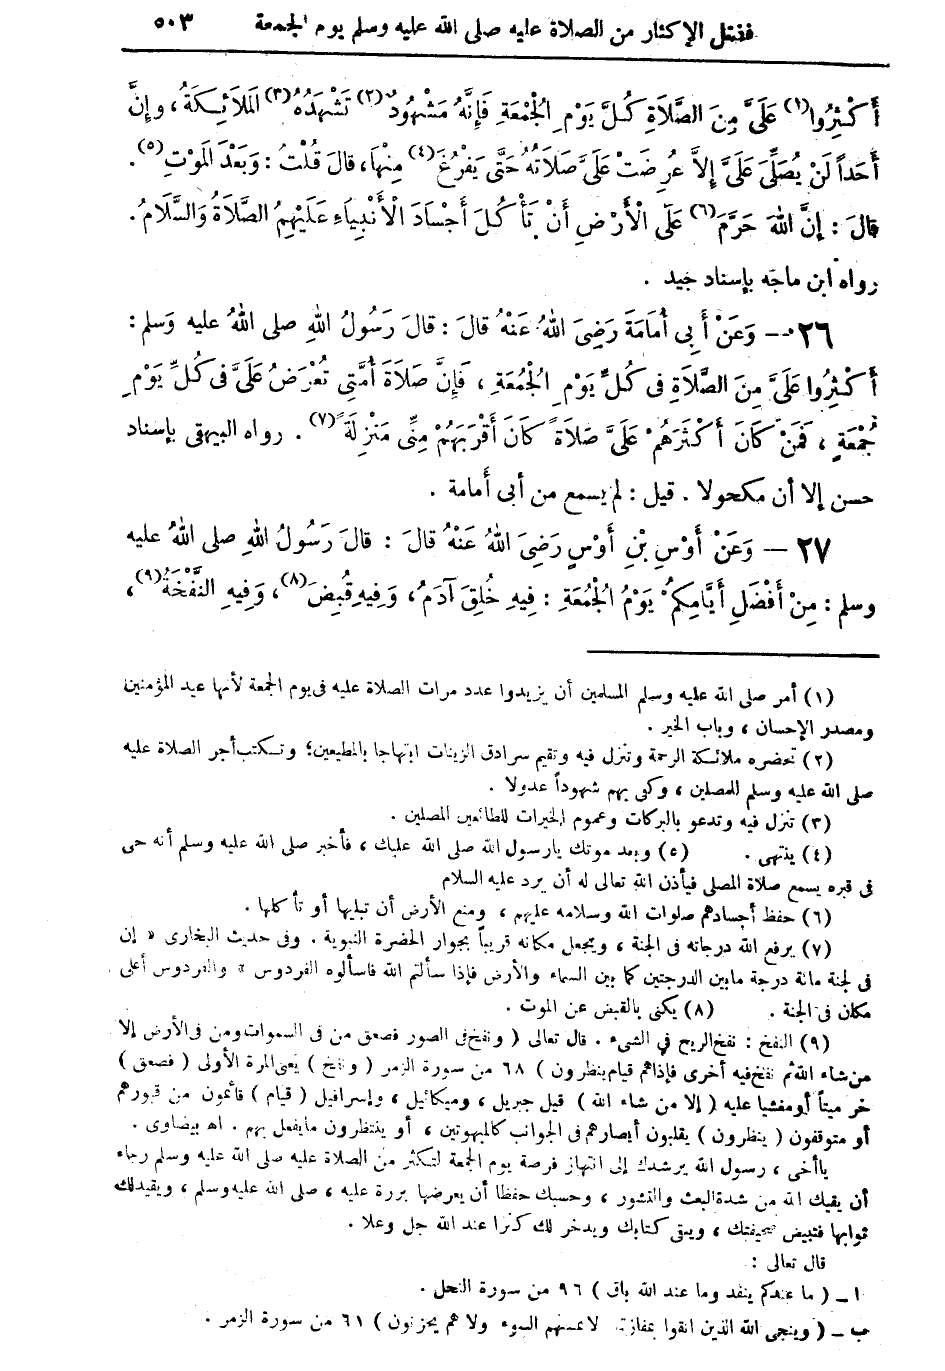 فضل الإكثار من الصلاة عليه صلى الله عليه وسلم يوم الجمعة ٥٠٣
أَكْثِرُوا(١) عَلَىَّ مِنَ الصَّلَاةِ كُلَّ يَوْمِ الْجُمْعَةِ فَإِنَّهُ مَشْهُودٌ(٢) تَشْهَدُهُ(٣) الْمَلَائِكَةُ، وَإِنَّ
أَحَداً لَنْ يُصَلِّىَ عَلَىَّ إِلاَّ عُرِضَتْ عَلَىَّ صَلَاتُهُ حَتَّى يَفْرُغَ(٤) مِنْهَا، قالَ قُلْتُ: وَبَعْدَ الْمَوْتِ(٥).
قالَ: إِنَّ اللهَ حَرَّمَ(٦) عَلَى الْأَرْضِ أَنْ تَأْكُلَ أَجْسَادَ الْأَنْبِيَاءِ عَلَيْهِمُ الصَّلَاةُ وَالسَّلَامُ.
رواه ابن ماجه بإسناد جيد .
٢٦ — وَعَنْ أَبِى أُمَامَةَ رَضِىَ اللهُ عَنْهُ قالَ: قالَ رَسُولُ اللهِ صلى اللهُ عليه وَسلم:
أَكْثِرُوا عَلَىَّ مِنَ الصَّلَاةِ فى كُلِّ يَوْمِ الْجُمْعَةِ، فَإِنَّ صَلَاةَ أُمَّتِى تُعْرَضُ عَلَىَّ فى كُلِّ يَوْمِ
جُمْعَةٍ، فَمَنْ كَانَ أَكْثَرَهُمْ عَلَىَّ صَلَاةً كَانَ أَقْرَبَهُمْ مِنِّى مَنْزِلَةً(٧). رواه البيهقى بإسناد
حسن إلا أن مكحولا. قيل: لم يسمع من أبى أُمامة .
٢٧ — وَعَنْ أَوْسِ بْنِ أَوْسٍ رَضِىَ اللهُ عَنْهُ قالَ: قالَ رَسُولُ اللهِ صلى اللهُ عليه
وسلم: مِنْ أَفْضَلِ أَيَّامِكُمْ يَوْمُ الْجُمُعَةِ: فِيهِ خُلِقَ آدَمُ، وَفِيهِ قُبِضَ(٨)، وَفِيهِ النَّفْخَةُ(٩)،
(١) أمر صلى الله عليه وسلم المسلمين أن يزيدوا عدد مرات الصلاة عليه فى يوم الجمعة لأنها عيد المؤمنين
ومصدر الإحسان، وباب الخير.
(٢) تحضره ملائكة الرحمة وتنزل فيه وتقيم سرادق الزينات ابتهاجا بالمطيعين؛ وتكتب أجر الصلاة عليه
صلى الله عليه وسلم للمصلين، وكفى بهم شهوداً عدولا .
(٣) تنزل فيه وتدعو بالبركات وعموم الخيرات للطائعين المصلين .
(٤) ينتهى . (٥) وبعد موتك يارسول الله صلى الله عليك، فأخبر صلى الله عليه وسلم أنه حى
فى قبره يسمع صلاة المصلى فيأذن الله تعالى له أن يرد عليه السلام
(٦) حفظ أجسادهم صلوات الله وسلامه عليهم، ومنع الأرض أن تبليها أو تأكلها .
(٧) يرفع الله درجاته فى الجنة، ويجعل مكانه قريباً بجوار الحضرة النبوية . وفى حديث البخارى « إن
فى لجنة مائة درجة مابين الدرجتين كما بين السماء والأرض فإذا سألتم الله فاسألوه الفردوس » والفردوس أعلى
مكان فى الجنة . (٨) يكنى بالقبض عن الموت .
(٩) النفخ: نفخ الريح في الشىء. قال تعالى ( ونفخ فى الصور فصعق من فى السموات ومن فى الأرض إلا
من شاء الله ثم نفخ فيه أخرى فإذا هم قيام ينظرون ) ٦٨ من سورة الزمر ( ونفخ ) يعنى المرة الأولى ( فصعق )
خر ميتاً أو مغشيا عليه ( إلا من شاء الله ) قيل جبريل، وميكائيل، وإسرافيل ( قيام ) قائمون من قبورهم
أو متوقفون ( ينظرون ) يقلبون أبصارهم فى الجوانب كالمبهوتين، أو ينتظرون مايفعل بهم . اهـ بيضاوى .
ياأخى، رسول الله يرشدك إلى انتهاز فرصة يوم الجمعة لتكثر من الصلاة عليه صلى الله عليه وسلم رجاء
أن يقيك الله من شدة البعث والنشور، وحسبك حفظا أن يعرضها بررة عليه، صلى الله عليه وسلم، ويفيدلك
ثوابها فتبيض صحيفتك، ويبقى كتابك ويدخر لك كنزا عند الله جل وعلا .
قال تعالى:
ا ــ ( ما عندكم ينفد وما عند الله باق ) ٩٦ من سورة النحل .
ب ــ ( وينجى الله الذين اتقوا بمفازتهم لا يمسهم السوء ولا هم يحزنون ) ٦١ من سورة الزمر .